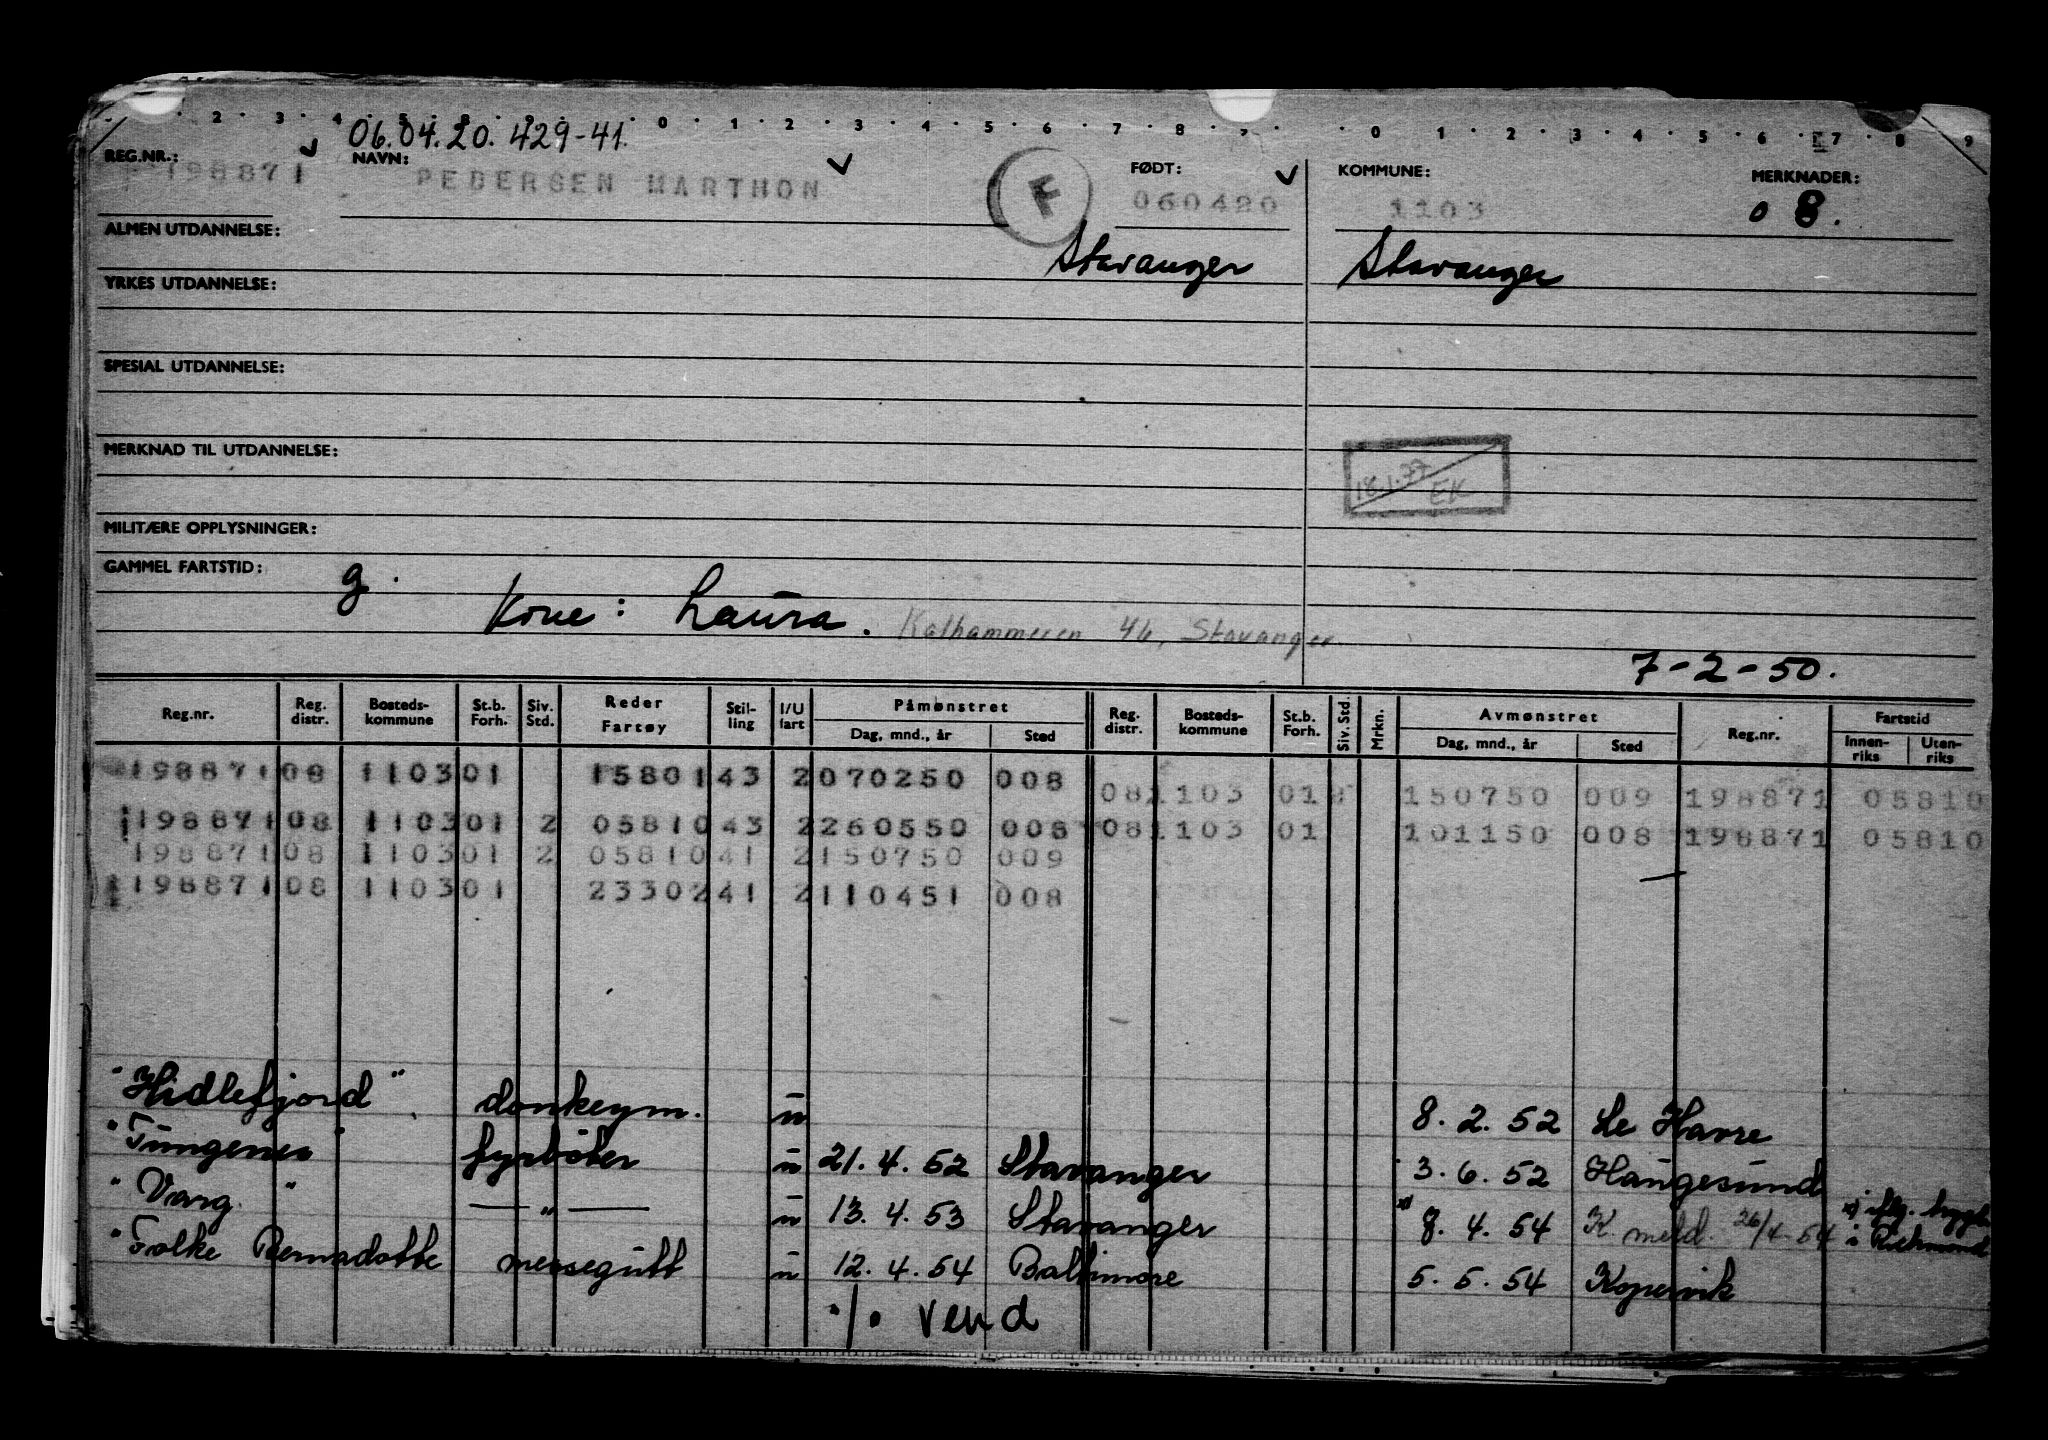 2 3 4 5 8 9 0 1 2 3 4 5 6 7 8 9 0 1 2 3 4 5 6 7 8 9
06.04.20. 429-41.
REG.NR.: NAVN: FØDT: KOMMUNE: MERKNADER:
198871 PEDERSEN MARTHON F 060420 1103 08.
ALMEN UTDANNELSE: Stavanger Stavanger
YRKES UTDANNELSE:
SPESIAL UTDANNELSE:
MERKNAD TIL UTDANNELSE:
18.1.77 EK
MILITÆRE OPPLYSNINGER:
GAMMEL FARTSTID: g.
Kone: Laura. Kalhammeren 46, Stavanger
7-2-50.
Reg.nr. Reg. distr. Bosteds-kommune St.b. Forh. Siv. Std. Reder Fartøy Stil-ling I/U fart Påmønstret Dag, mnd., år Sted Reg. distr. Bosteds-kommune St.b. Forh. Siv. Std. Mrkn. Avmønstret Dag, mnd., år Sted Reg.nr. Fartstid Innen-riks Uten-riks
198871 08 1103 01 15801 43 2 070250 008 08 1103 01 150750 009 198871 05810
198871 08 1103 01 2 05810 43 2 260550 008 08 1103 01 101150 008 198871 05810
198871 08 1103 01 2 05810 41 2 150750 009
198871 08 1103 01 23302 41 2 110451 008
"Hidlefjord" donkeym. u 8.2.52 Le Havre
"Tungenes" fyrbøter u 21.4.52 Stavanger 3.6.52 Haugesund
"Varg" — " — u 13.4.53 Stavanger x) 8.4.54 K. meld. 26/4-54 x) iflg. i Richmond
"Folke Bernadotte messegutt u 12.4.54 Baltimore 5.5.54 Kopervik
./. vend